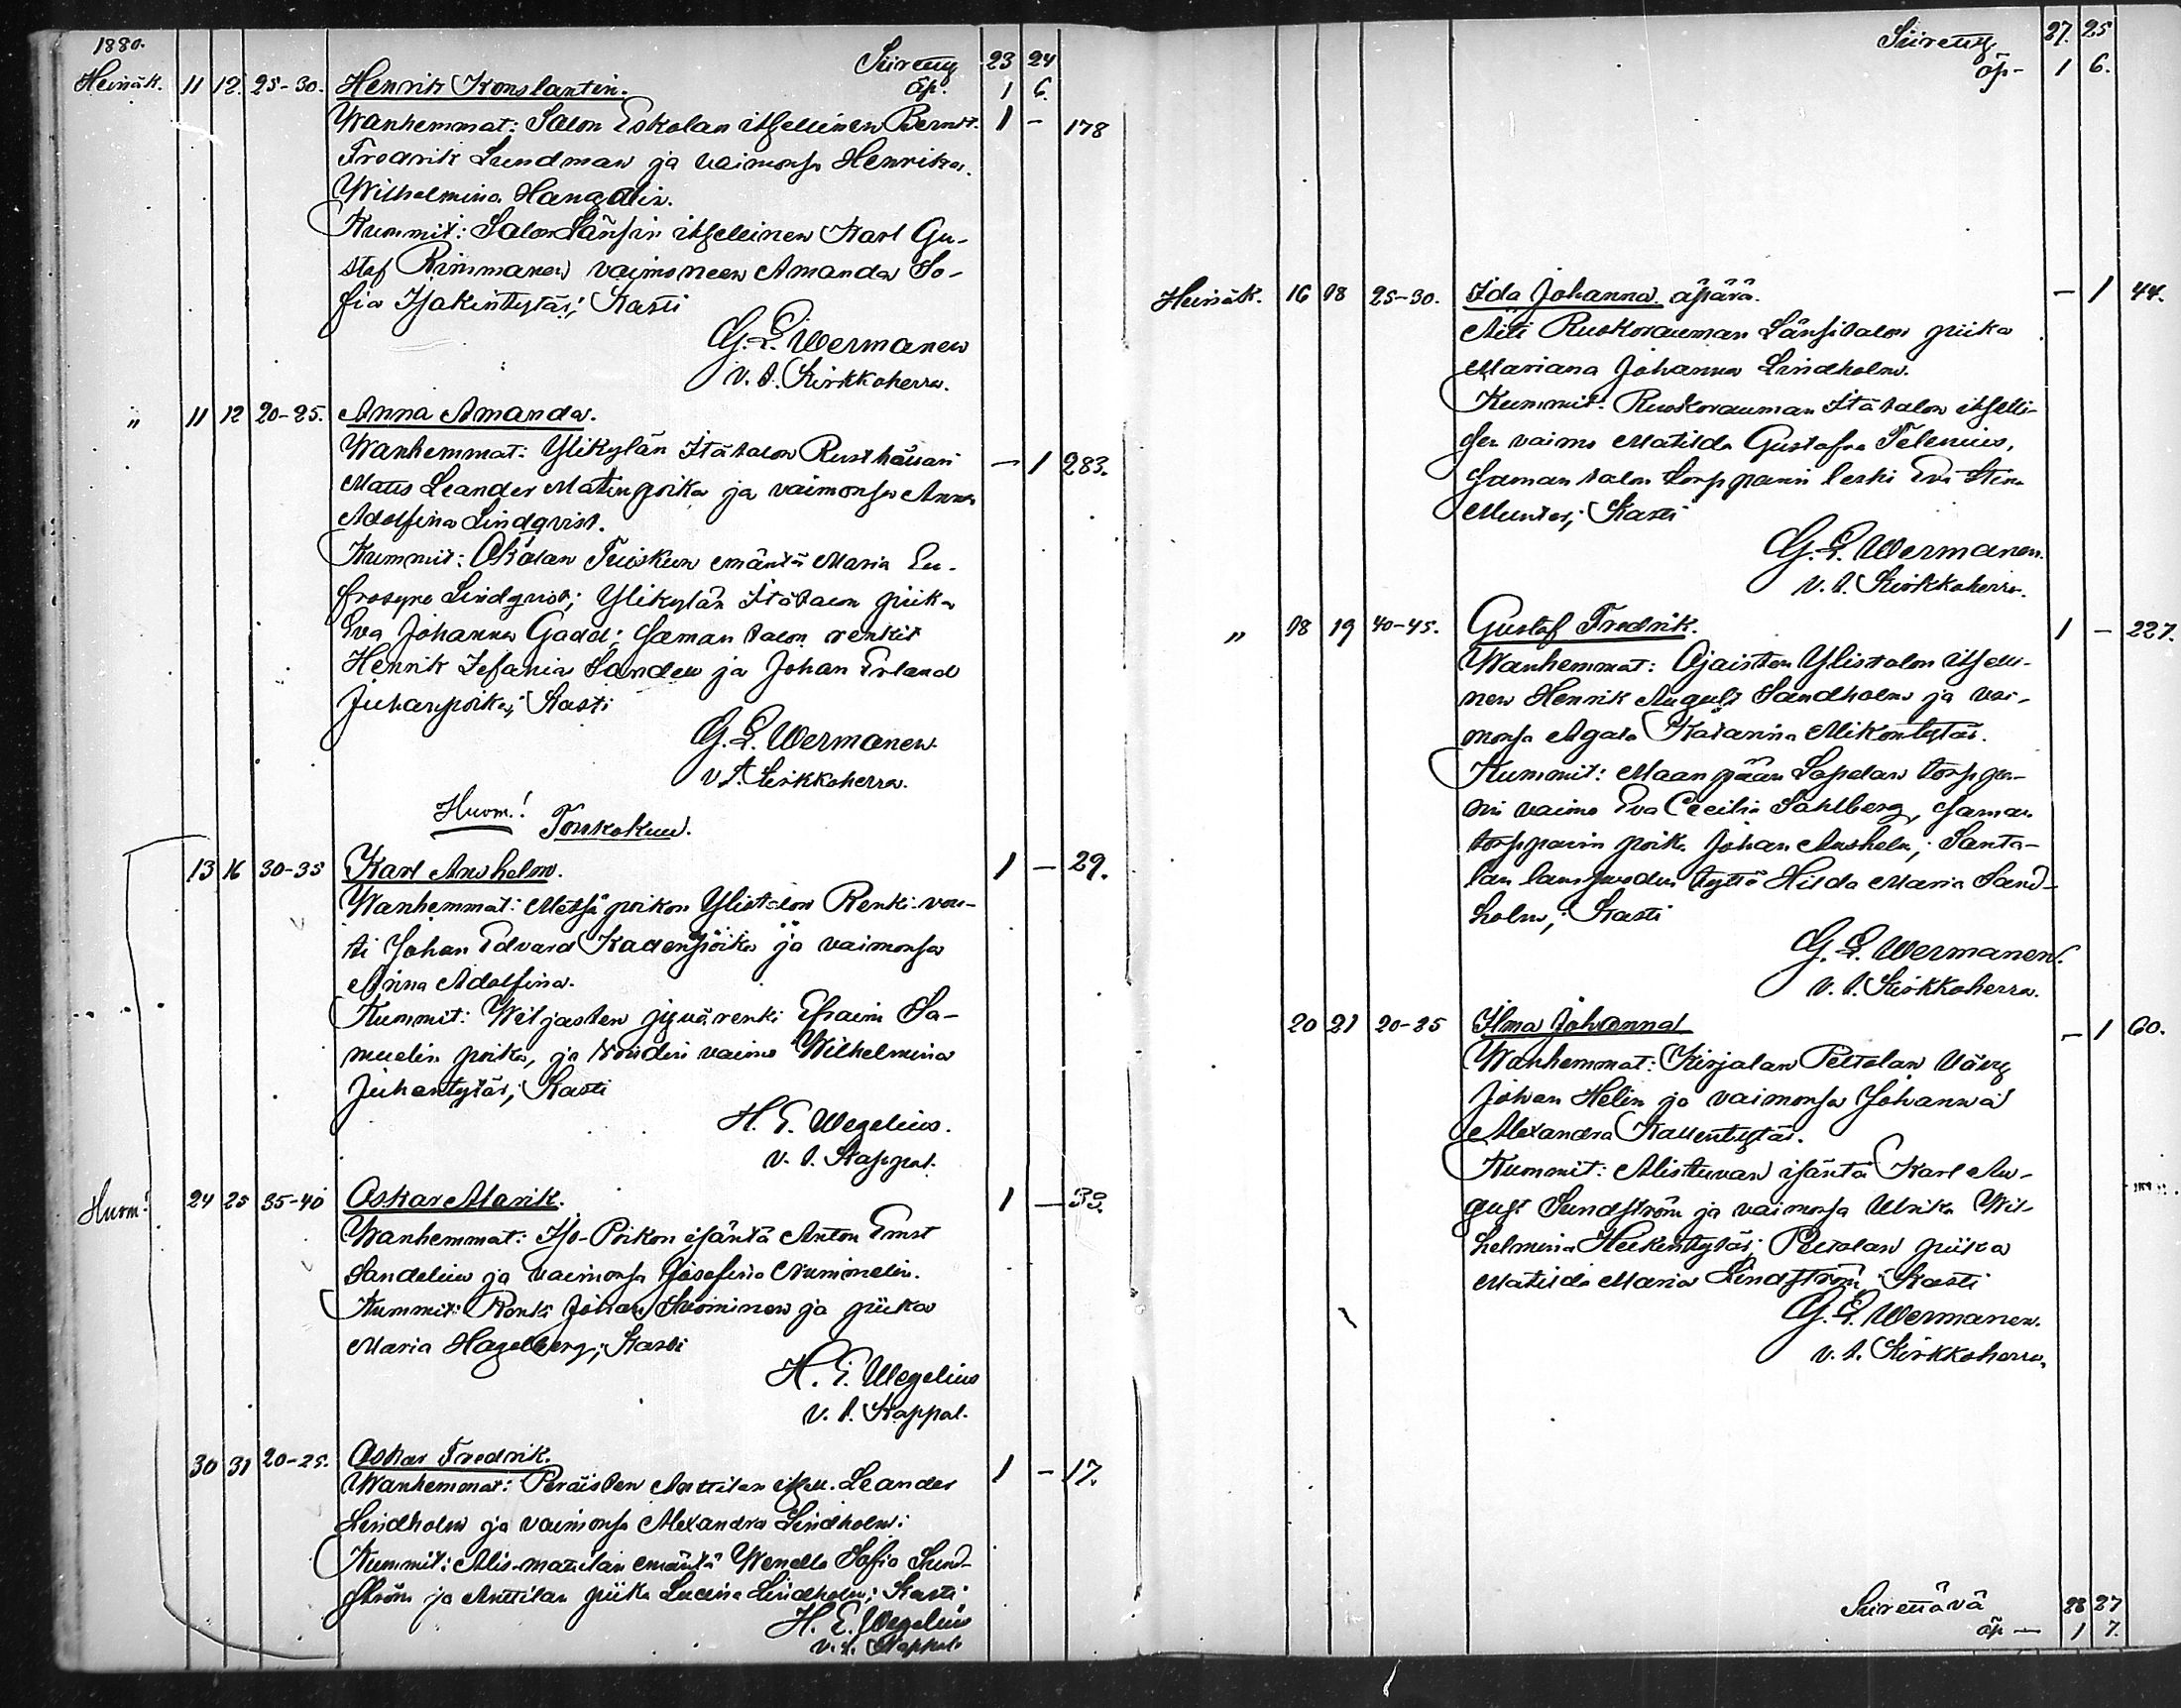 1880.
Siiretty 23 24
Heinäk. 11 12. 25-30. Henrik Konstantin. äp. 1 6.
Wanhemmat: Salon Eskolan itsellinen Bernt. 1 - 178
Fredrik Lundman ja vaimonsa Henrika
Wilhelmina Hangelin.
Kummit: Salon Länsin itsellinen Karl Gu-
staf Rimmanen vaimoneen Amanda So-
fia Isakintytär; Kasti
G. L. Wermanen
v. t. Kirkkoherra.
" 11 12 20-25. Anna Amanda.
Wanhemmat: Ylikylän Itätalon Rusthållari - 1 283.
Matts Leander Matinpoika ja vaimonsa Anna
Adolfina Lindqvist.
Kummit: Tuiskun emäntä Maria Eu-
frosyne Lindqvist; Ylikylän Itätalon piika
Eva Johanna Gadd; saman talon renkit
Henrik Sefania Sanden ja Johan Erland
Juhanpoika; Kasti
G. L. Wermanen.
v. t. Kirkkoherra.
Huom! Toukokuu.
13 16 30-35 Karl Anshelm. 1 - 29.
Wanhemmat: Metsäpoikon Ylistalon Renki vou-
ti Johan Edvard Kallenpoika ja vaimonsa
Anna Adolfina.
Kummit: Wiljasten jyvärenki Efraim Sa-
muelin poika, ja voudin vaimo Wilhelmina
Juhantytär; Kasti
H. E. Wegelius.
v. t. Kappal.
Huom! 24 25 35-40 Oskar Alarik. 1 - 33.
Wanhemmat: Iso-Poikon isäntä Anton Ernst
Sandelin ja vaimonsa Josefina Nummelin.
Kummit: Renki Johan Suominen ja piika
Maria Hagelberg; Kasti
H. E. Wegelius
v. t. Kappal.
30 31 20-25. Oskar Fredrik. 1 - 17.
Wanhemmat: Peräisten Anttilan itsell. Leander
Lindholm ja vaimonsa Alexandra Lindholm:
Kummit: Alis-mattilan emäntä Wendla Sofia Sund-
ström ja Anttilan piika Lucina Lindholm; Kasti
H. E. Wegelius
v. t. Kappal.
Siiretty 27. 25
äp- 1 6.
Heinäk. 16 18 25-30. Ida Johanna. äpärä. - 1 44.
Äiti Ruokorauman Länsitalon piika
Mariana Johanna Lindholm.
Kummit: Ruokorauman Itätalon itselli-
sen vaimo Matilda Gustafva Telenius,
saman talon torpparin leski Eva Stina
; Kasti
G. L. Wermanen.
v. t. Kirkkoherra.
" 18 19 40-45. Gustaf Fredrik. 1 - 227.
Wanhemmat: Ojaisten Ylistalon itselli-
nen Henrik August Sandholm ja vai-
monsa Agata Katarina Mikontytär.
Kummit: Maanpään Lapdan torppa-
rin vaimo Eva Cecilia Sahlberg, saman
torpparin poika Johan Anshelm; Santa-
lan lampuodin tyttö Hilda Maria Sand-
holm; Kasti
G. L. Wermanen.
v. t. Kirkkoherra.
20 21 20-25 Ilma Johanna - 1 60.
Wanhemmat: Kirjalan Peltolan vävy
Johan Helin ja vaimonsa Johanna
Alexandra Kallentytär.
Kummit: Alistuvan isäntä Karl Au-
gust Sundström ja vaimonsa Ulrika Wil-
helmina Heikintytär; Peltolan piika
Matilda Maria Lindström; Kasti
G. L. Wermanen.
v. t. Kirkkoherra.
Siirettävä 28 27
äp - 1 7.